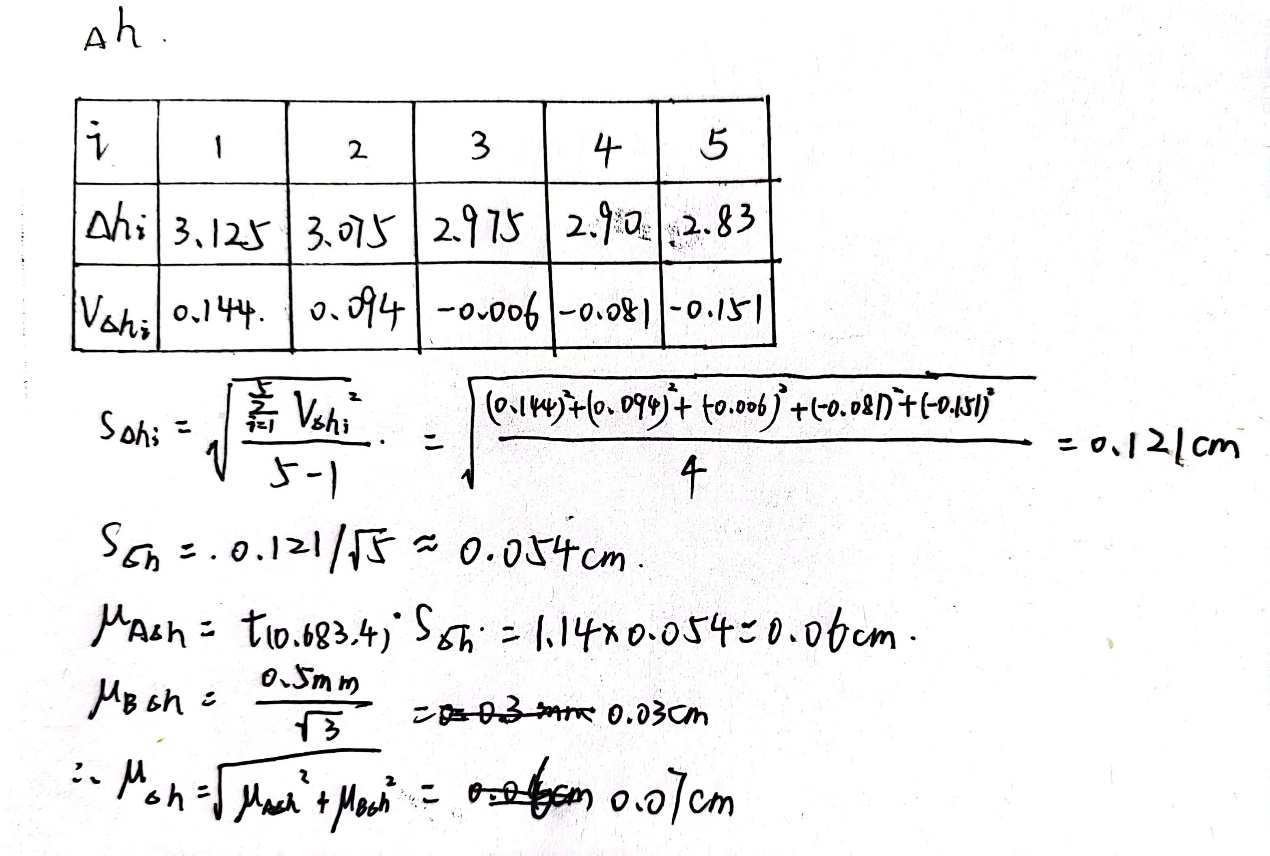 Δh.
i 1 2 3 4 5
Δhi 3.125 3.075 2.975 2.90 2.83
VΔhi 0.144. 0.094 -0.006 -0.081 -0.151
SΔhi = √(∑_{i=1}^{5} VΔhi² / 5-1) . = √((0.144)²+(0.094)²+(-0.006)²+(-0.081)²+(-0.151)² / 4) = 0.121cm
SΔh̄ = . 0.121/√5 ≈ 0.054cm.
μAΔh = t(0.683,4)·SΔh̄· = 1.14×0.054=0.06cm.
μBΔh = 0.5mm/√3 = 0.03cm
∴ μΔh = √(μAΔh² + μBΔh²) = 0.07cm